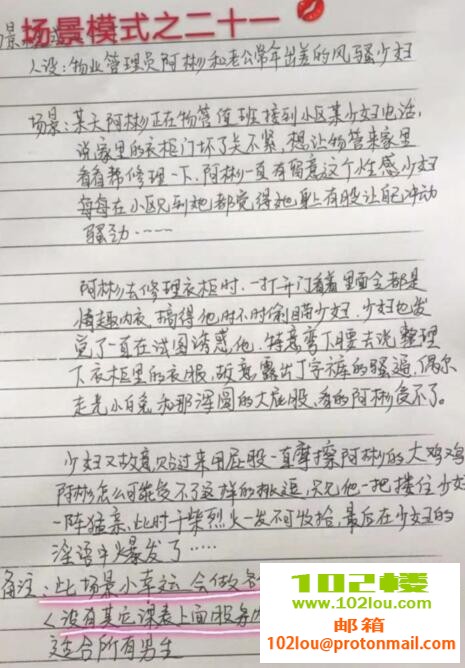 场景模式之二十一
人设：物业管理员阿彬和老公常年出差的风骚少妇
场景：某天阿彬正在物管值班接到小区某少妇电话，
说家里的衣柜门坏了关不紧，想让物管来家里
看看帮修理一下，阿彬一直有留意这个性感少妇
每每在小区见到她都觉得她身上有股让自己冲动
骚劲……
阿彬去修理衣柜时，一打开门看着里面全都是
情趣内衣，搞得他时不时偷瞄少妇，少妇也发
觉了一直在试图诱惑他，特意弯下腰去说整理
下衣柜里的衣服，故意露出丁字裤的骚逼，偶尔
走光小白兔和那浑圆的大屁股，看的阿彬受不了。
少妇又故意贴过来用屁股一直摩擦阿彬的大鸡鸡
阿彬怎么可能受不了这样的挑逗，只见他一把搂住少妇
一阵猛亲，此时干柴烈火一发不可收拾，最后在少妇的
淫语中爆发了……
备注：此场景小幸运会做
（没有其它课表上面服务
适合所有男生
102楼
www.102lou.com
邮箱
102lou@protonmail.com